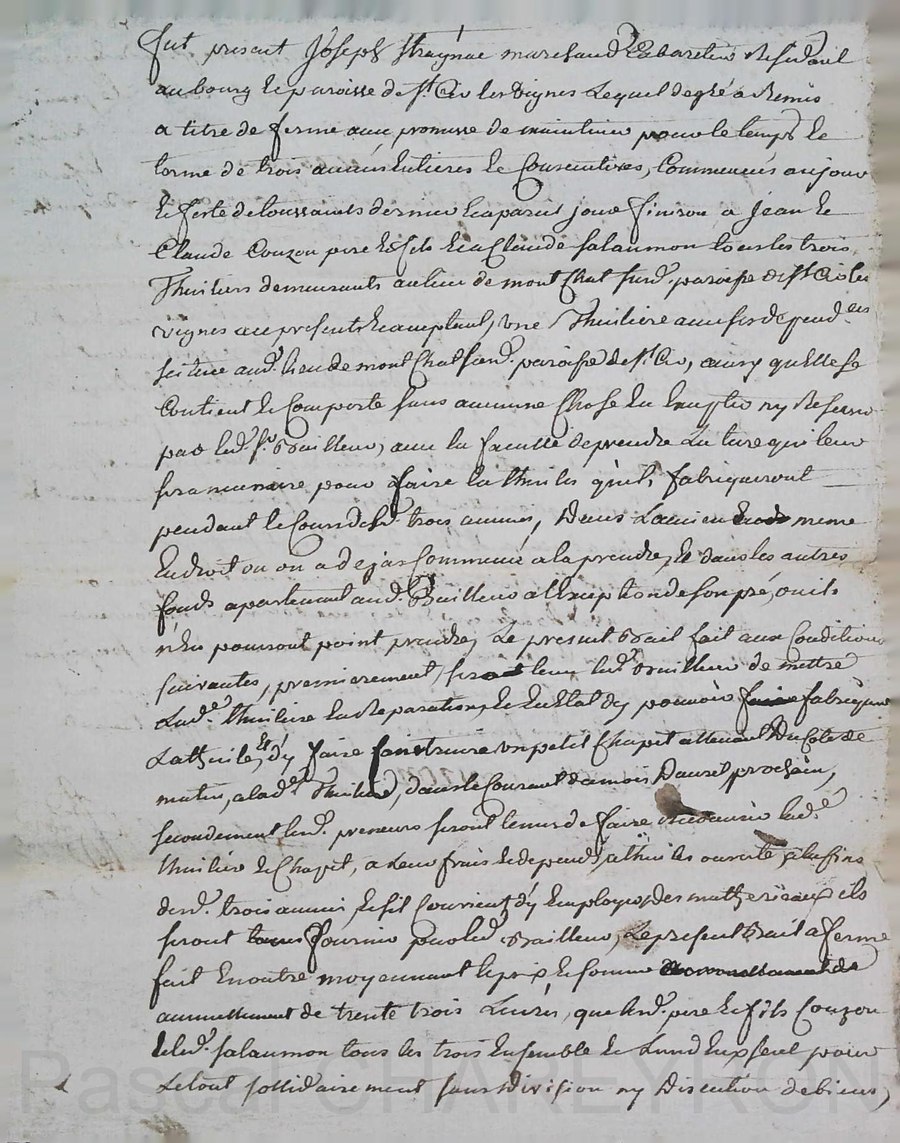 fut present Joseph Traynac marchand Cabaretier Residant
au bourg & paroisse de St Cir les vignes Lequel de gré a Remis
a titre de ferme avec promesse de maintenir pour le temps &
terme de trois années Entieres & Consecutives, Commencés au jour
& feste de toussaints dernier & a pareil jour finiron a Jean &
Claude Couzon pere & fils & a Claude salaumon tous les trois
Thuiliers demeurants au lieu de mont Chat susd. paroisse de St Cir les
vignes au presents & acceptent, une Thuiliere avec ses dependces
scituée aud. lieu de mont Chat sud. paroisse de St Cir, ainsy quelle se
Contient & Comporte sans aucune Chose En Excepter ny Reserver
par led. sr. Bailleur, avec la faculté de prendre La terre qui leur
sera necessaire pour faire la thuiles qu'ils fabriqueront
pendant le Cours desd. trois années, Dans L'ancien meme
Endroit ou on a dejas Commencé a la prendre, & dans les autres
fonds apartenant aud. Bailleur a l'Exception de son pré, ou ils
n'En pourront point prendre, Le present Bail fait aux Conditions
suivantes, premierement, sera tenu led. Bailleur de mettre
Lad. thuiliere En Reparation, & En Etat d'y pouvoir faire fabriquer
La thuile, & d'y faire Construire un petit Chapit attenant Du Coté de
matin, a lad. Thuiliere, dans le Courant du mois D'avril prochain,
secondement lesd. preneurs seront tenus de faire Recouvrir lad.
thuiliere & Chapit, a Leur frais & depends, a thuiles ouverte, a la fin
desd. trois années, & s'il Convient d'y Employer des matheriaux ils
seront fournis par led. Bailleur, Le present Bail a ferme
fait En outre moyennant le prix & somme
annuellement de trente trois Livres, que lesd. pere & fils Couzon
& led. salaumon tous les trois Ensemble & L'und Eux seul pour
Le tout sollidairement sans Division ny Discution de biens,
Pascal CHAREYRON